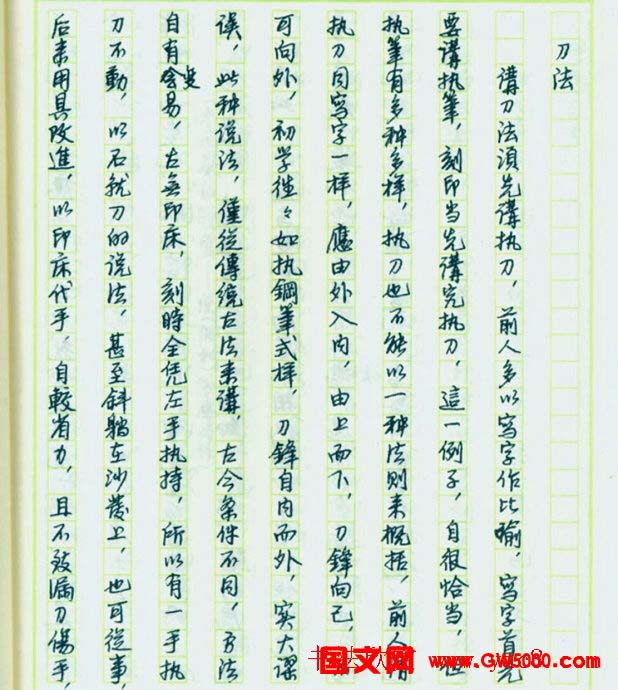 刀法
講刀法須先講执刀，前人多以寫字作比喻，寫字首先
要講执筆，刻印当先講究执刀，這一例子，自很恰当，
执筆有多种多样，执刀也不能以一种法则来概括，前人
执刀同寫字一样，應由外入內，由上而下，刀鋒向己，
可向外，初学往々如执鋼筆式样，刀鋒自內而外，实大謬
误，此种说法，僅從傳统古法来講，古今条件不同，方法
自有变易，古無印床，刻時全凭左手执持，所以有一手执
刀不動，以石就刀的说法，甚至斜躺在沙發上，也可從事，
后来用具改進，以印床代手，自較省力，且不致漏刀傷手，
国文网 www.GW5000.com